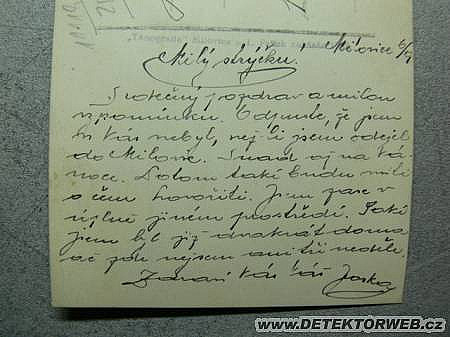 Milovice 6/9
Milý strýčku!
Srdečný pozdrav a milou
vzpomínku. Odpusťte, že jsem
u Vás nebyl, než-li jsem odejel
do Milovic. Snad až na Vá-
noce. Potom také budu míti
o čem hovořiti. Jsem zase v
úplně jiném prostředí. Také
jsem byl již dvakrát doma
ač zde nejsem ani tři neděle.
Zdraví Vás Váš Jarka
WWW.DETEKTORWEB.CZ